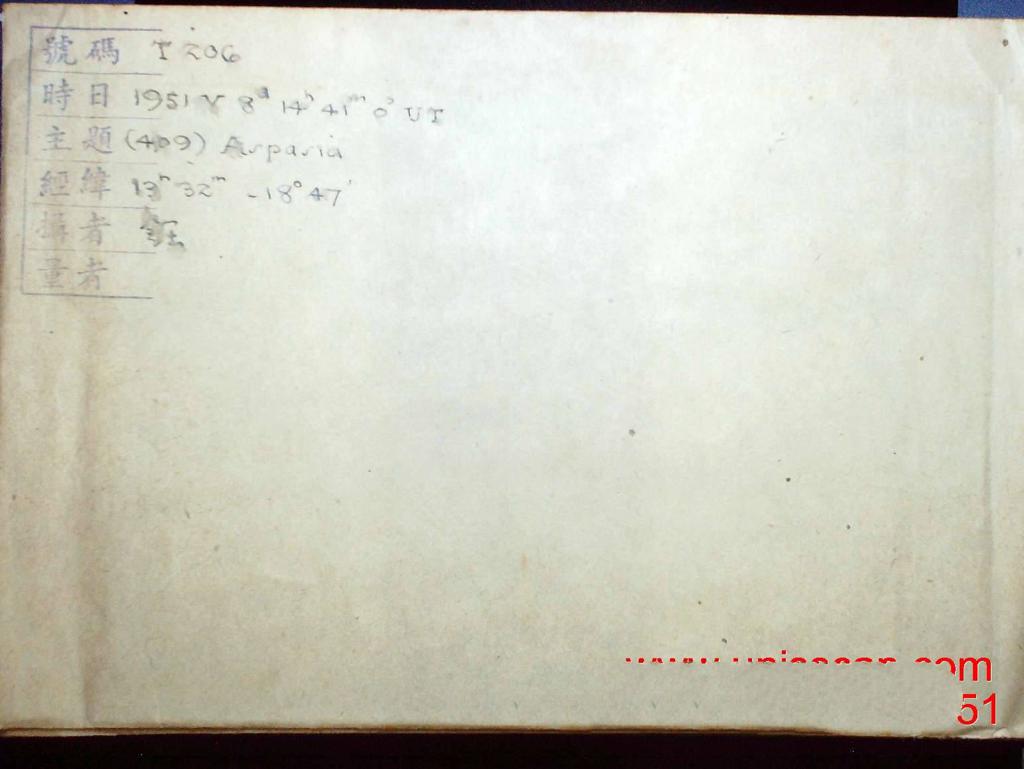 號碼 T 206
時日 1951 V 8ᵈ 14ʰ 41ᵐ 0ˢ UT
主題 (409) Aspasia
經緯 13ʰ 32ᵐ -18°47'
攝者
量者
51